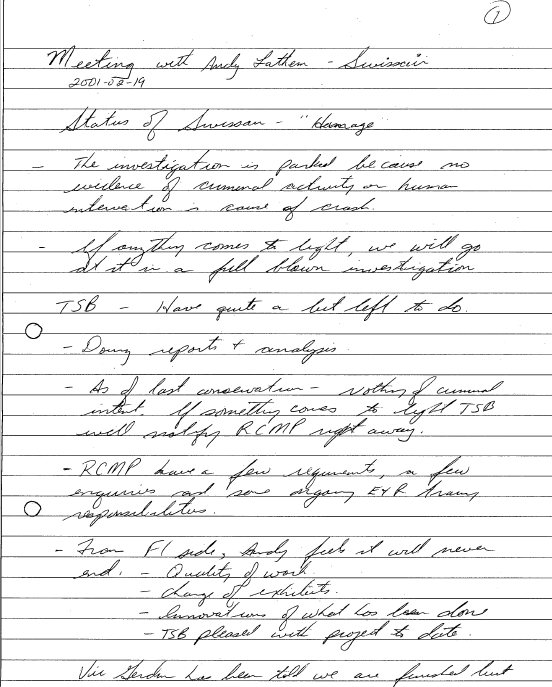 1
Meeting with Andy Lathem - Swissair
2001-02-19
Status of Swissair - "Homage"
- The investigation is parked because no
evidence of criminal activity or human
intervention is cause of crash.
- If anything comes to light, we will go
at it in a full blown investigation
TSB - Have quite a bit left to do.
- Doing reports + analysis.
- As of last conversation - nothing of criminal
intent. If something comes to light TSB
will notify RCMP right away.
- RCMP have a few requirements, a few
enquiries and some ongoing
responsibilities.
- From side, Andy feels it will never
end. - Quality of work.
- change of exhibits.
- Innovations of what has been done
- TSB pleased with project to date.
Vic Gerden has been told we are finished but